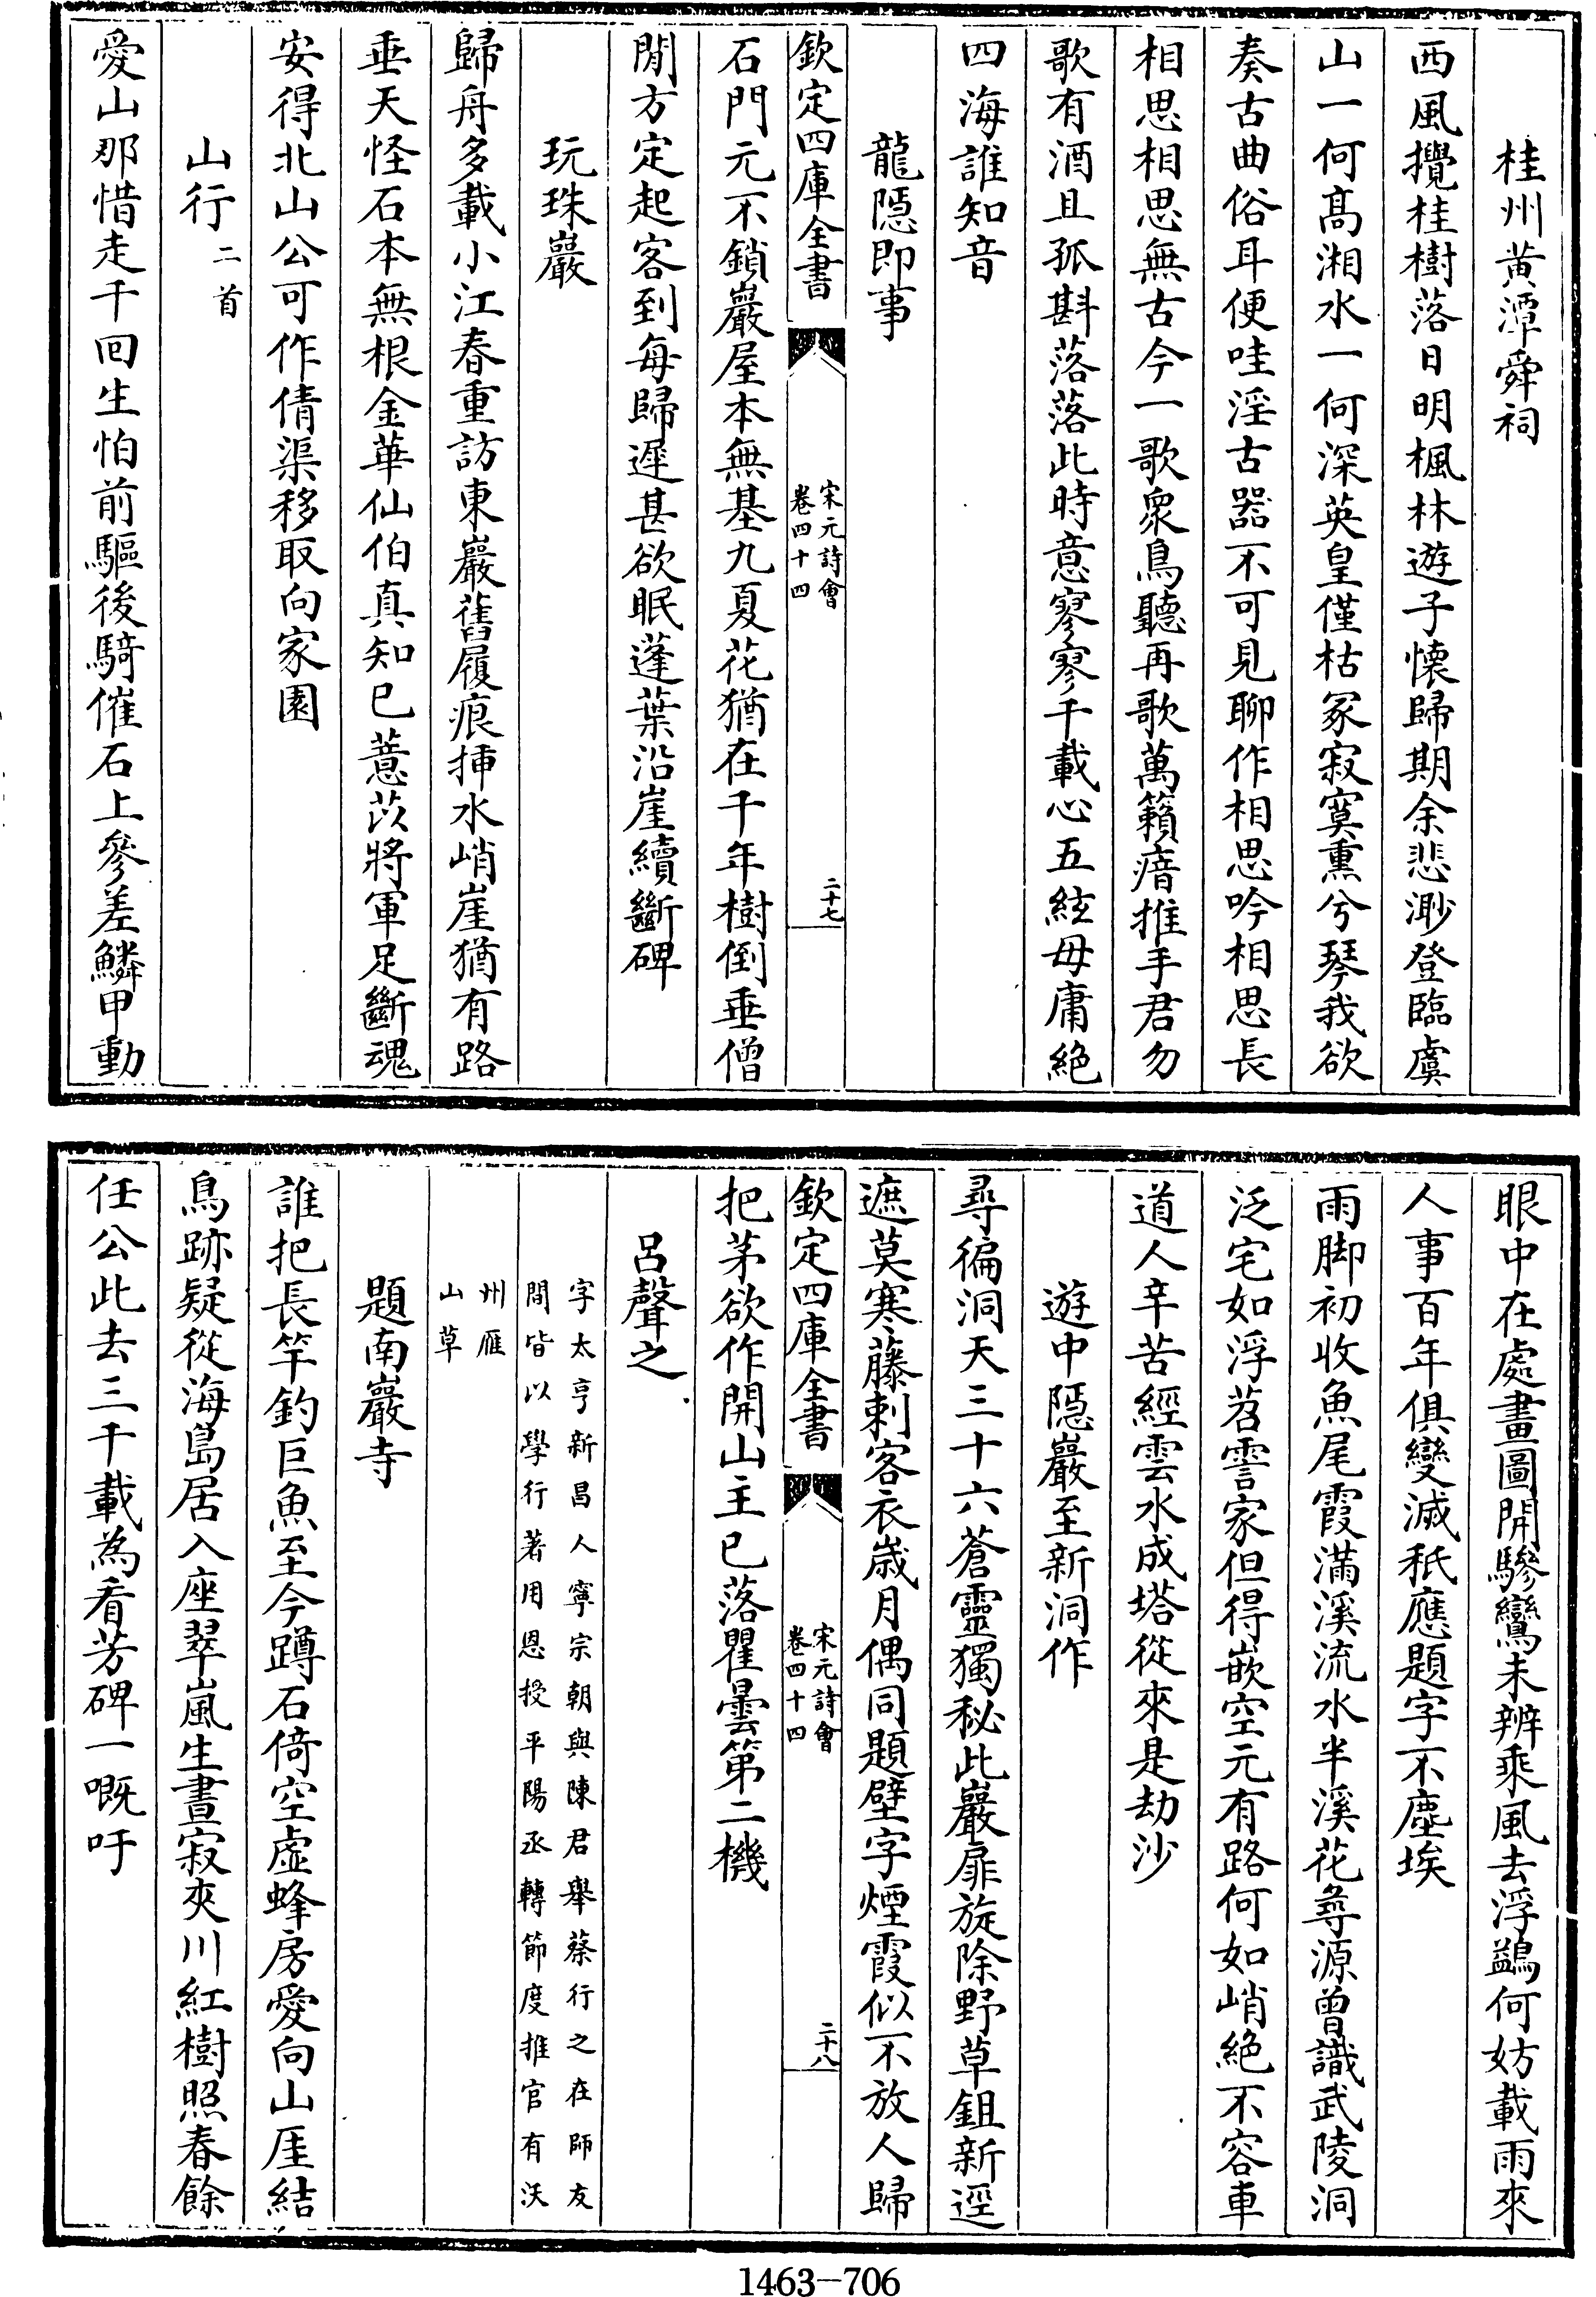 桂州黄潭舜祠
西風攪桂樹落日明楓林遊子懐歸期余悲渺登臨虞
山一何髙湘水一何深英皇僅枯冢寂寞熏兮琴我欲
奏古曲俗耳便哇淫古器不可見聊作相思吟相思長
相思相思無古今一歌衆鳥聽再歌萬籟瘖推手君勿
歌有酒且孤斟落落此時意寥寥千載心五絃毋庸絶
四海誰知音
龍隠即事
欽定四庫全書
宋元詩會
卷四十四
二十七
石門元不鎖巖屋本無基九夏花猶在千年樹倒垂僧
閒方定起客到每歸遲甚欲眠蓬葉沿崖續斷碑
玩珠巖
歸舟多載小江春重訪東巖舊履痕挿水峭崖猶有路
垂天怪石本無根金華仙伯真知已薏苡將軍足斷魂
安得北山公可作倩渠移取向家園
山行二首
愛山那惜走千回生怕前驅後騎催石上參差鱗甲動
眼中在處畫圖開驂鸞未辨乘風去浮鷁何妨載雨來
人事百年俱變滅秖應題字不塵埃
雨脚初收魚尾霞滿溪流水半溪花尋源曾識武陵洞
泛宅如浮苕霅家但得嵌空元有路何如峭絶不容車
道人辛苦經雲水成塔從來是劫沙
遊中隠巖至新洞作
尋徧洞天三十六蒼靈獨秘此巖扉旋除野草鉏新逕
遮莫寒藤刺客衣歳月偶同題壁字煙霞似不放人歸
欽定四庫全書
宋元詩會
卷四十四
二十八
把茅欲作開山主已落瞿曇第二機
呂聲之
字太亨新昌人寧宗朝與陳君舉蔡行之在師友
間皆以學行著用恩授平陽丞轉節度推官有沃
州雁
山草
題南巖寺
誰把長竿釣巨魚至今蹲石倚空虚蜂房愛向山厓結
鳥跡疑從海島居入座翠嵐生晝寂夾川紅樹照春餘
任公此去三千載為看芳碑一嘅吁
1463—706